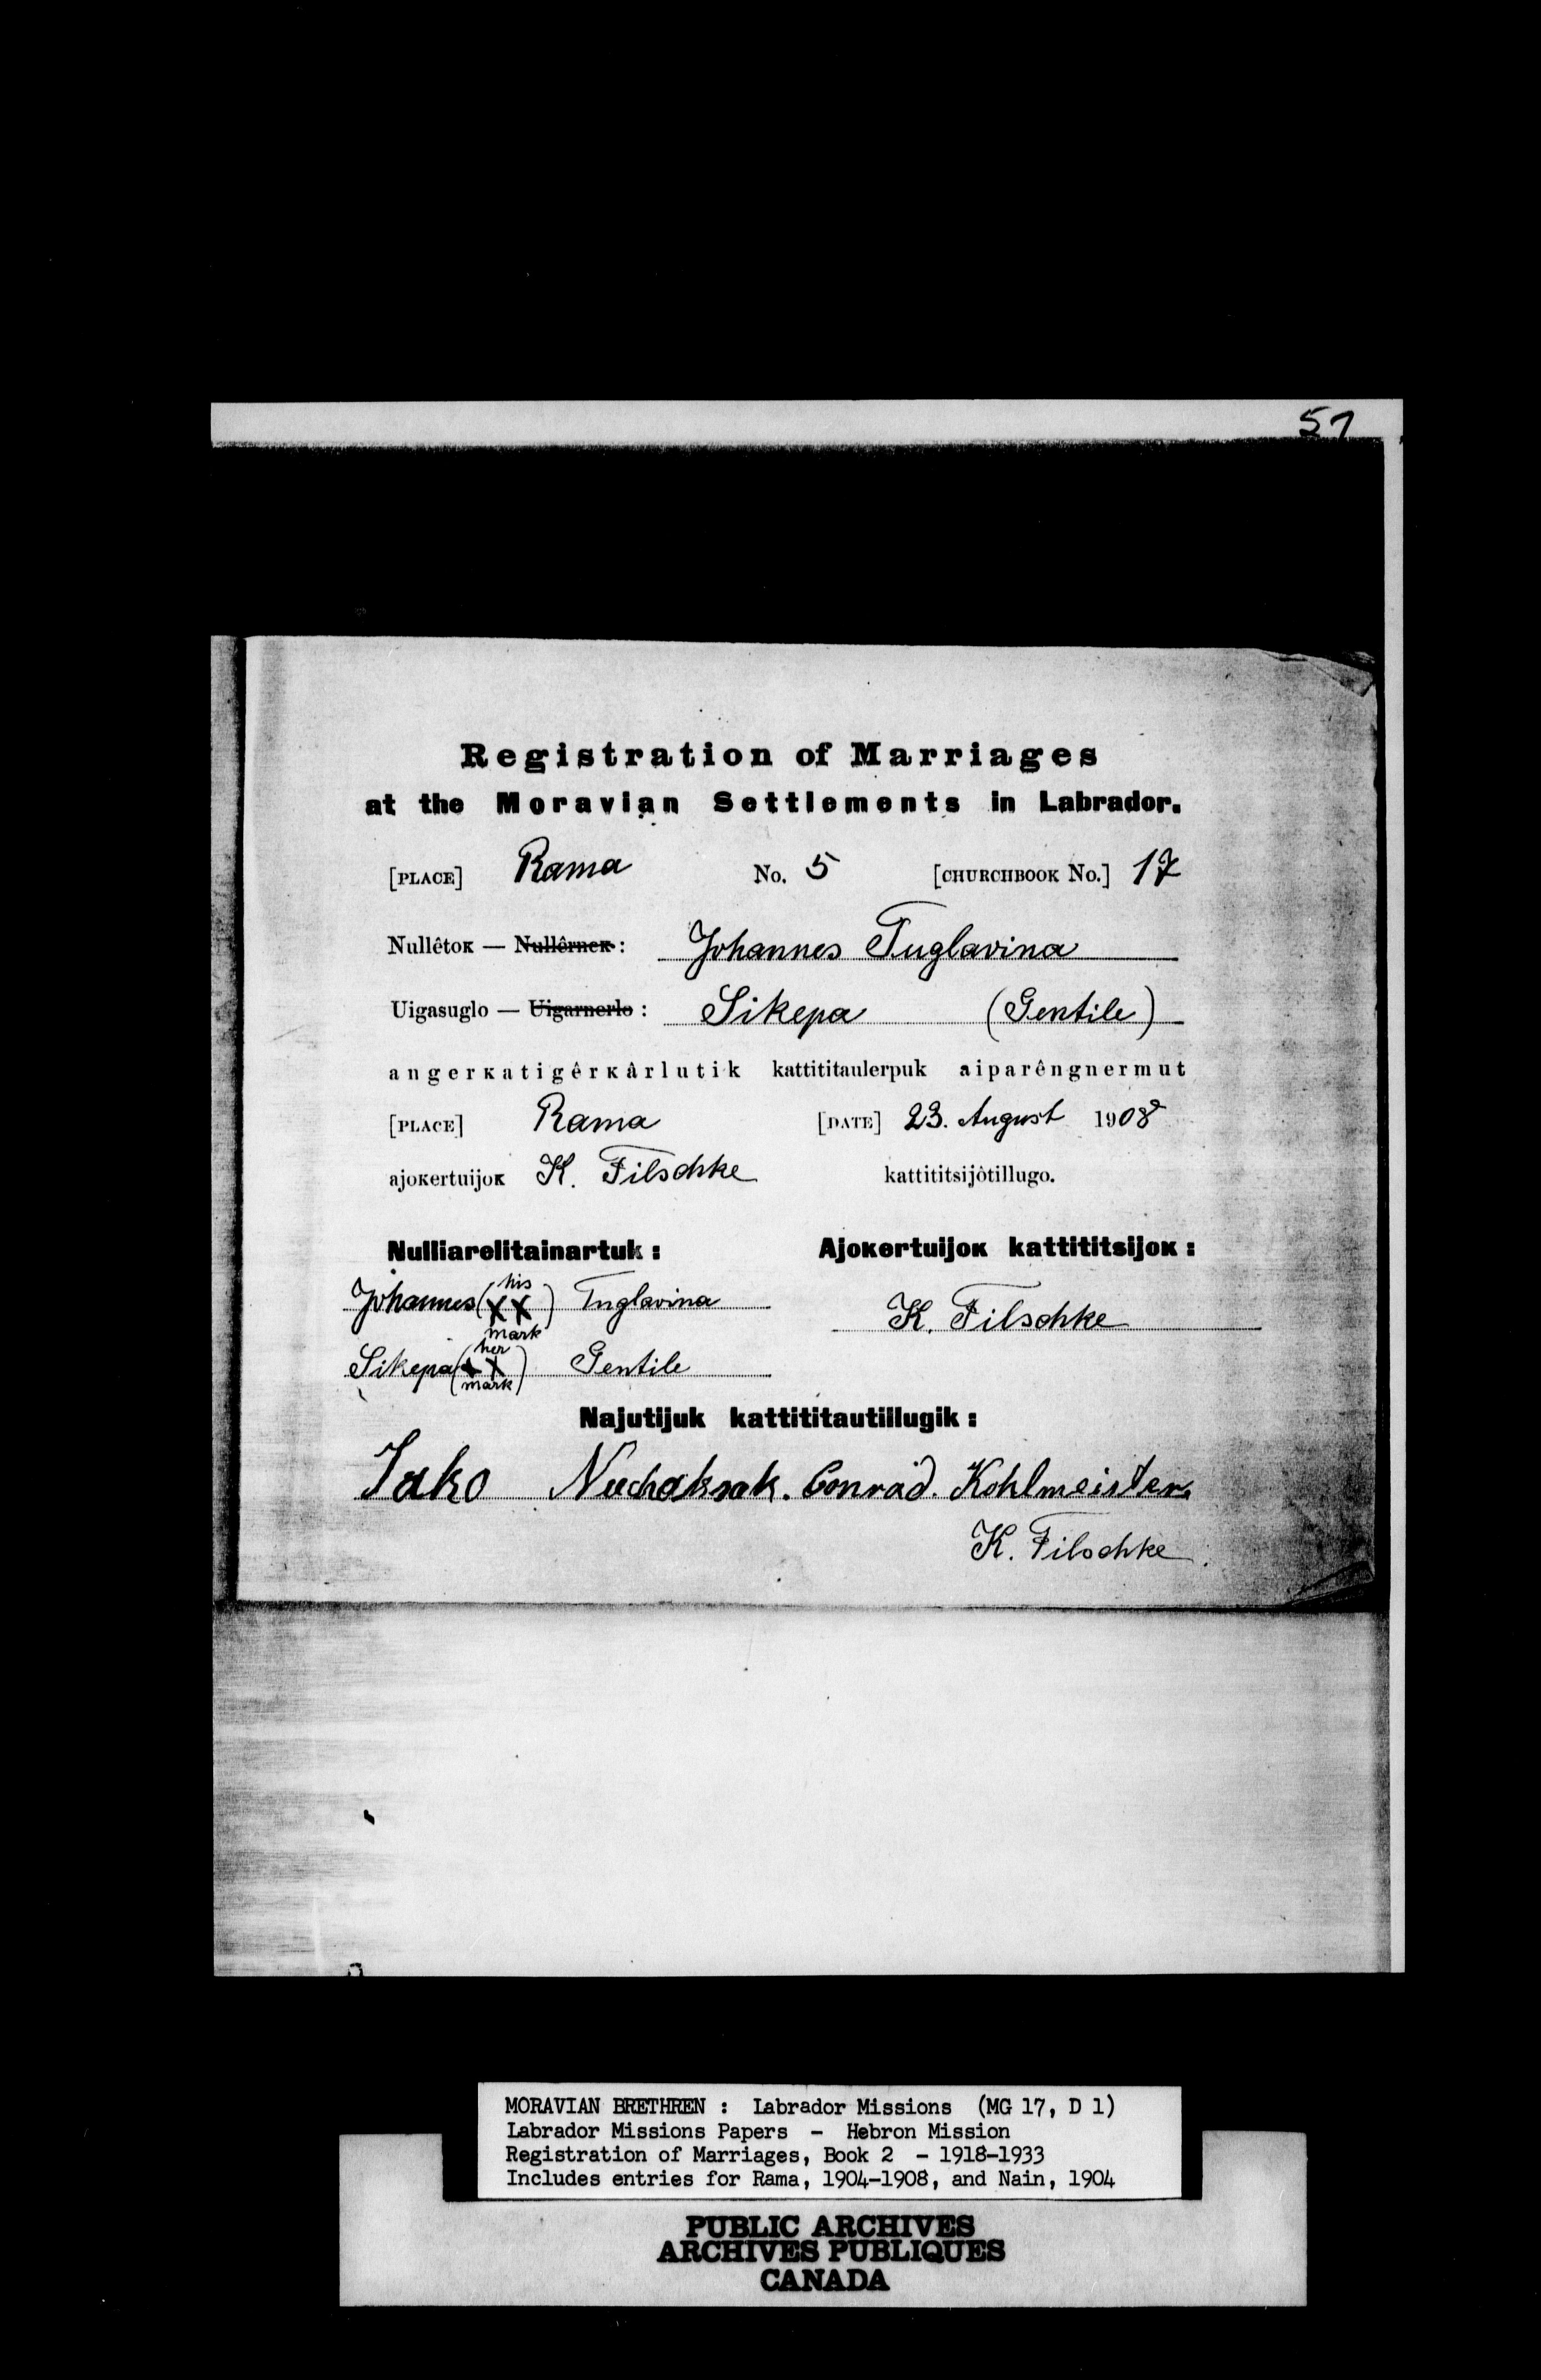 57
Registration of Marriages
at the Moravian Settlements in Labrador.
[PLACE] Rama No. 5 [CHURCHBOOK No.] 17
Nullêtoĸ — Nullêrneĸ: Johannes Tuglavina
Uigasuglo — Uigarnerlo: Sikepa (Gentile)
angerĸatigêrĸârlutik kattititaulerpuk aiparêngnermut
[PLACE] Rama [DATE] 23. August 1908
ajoĸertuijoĸ K. Filschke kattititsijôtillugo.
Nulliarelitainartuk: Ajoĸertuijoĸ kattititsijoĸ:
his
Johannes (XX) Tuglavina K. Filschke
mark
her
Sikepa (XX) Gentile
mark
Najutijuk kattititautillugik:
Jako Conrad. Kohlmeister.
K. Filschke
MORAVIAN BRETHREN : Labrador Missions (MG 17, D 1)
Labrador Missions Papers - Hebron Mission
Registration of Marriages, Book 2 - 1918-1933
Includes entries for Rama, 1904-1908, and Nain, 1904
PUBLIC ARCHIVES
ARCHIVES PUBLIQUES
CANADA